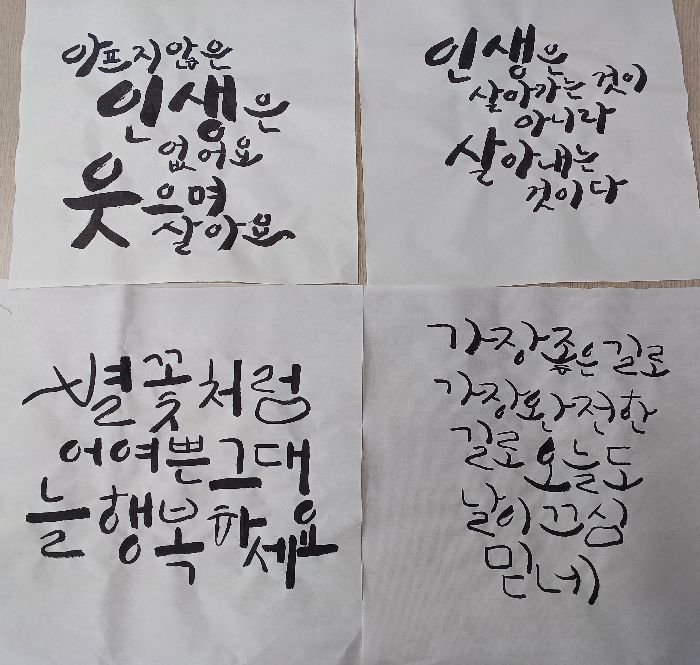 아프지않은
인생은
없어요
웃으며
살아요
인생은
살아가는 것이
아니라
살아내는
것이다
별꽃처럼
어여쁜그대
늘행복하세요
가장좋은길로
가장완전한
길로오늘도
날이끄심
믿네